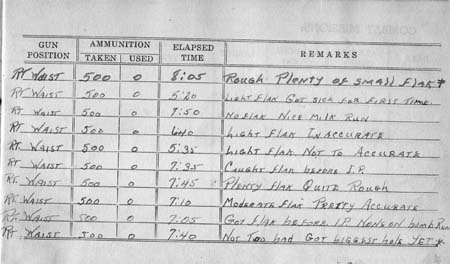 GUN POSITION AMMUNITION TAKEN USED ELAPSED TIME REMARKS
RT WAIST 500 0 8:05 ROUGH PLENTY OF SMALL FLAK *
RT WAIST 500 0 5:20 LIGHT FLAK GOT SICK FOR FIRST TIME.
RT WAIST 500 0 7:50 NO FLAK NICE MILK RUN
RT WAIST 500 0 6:40 LIGHT FLAK INACCURATE
RT WAIST 500 0 5:35 LIGHT FLAK NOT TO ACCURATE
RT WAIST 500 0 7:35 CAUGHT FLAK BEFORE I.P.
RT. WAIST 500 0 7:45 PLENTY FLAK QUITE ROUGH
RT WAIST 500 0 7:10 MODERATE FLAK PRETTY ACCURATE
RT. WAIST 500 0 7:05 GOT FLAK BEFORE I.P NONE ON BOMB RUN
RT WAIST 500 0 7:40 NOT TOO BAD GOT BIGGEST HOLE YET *